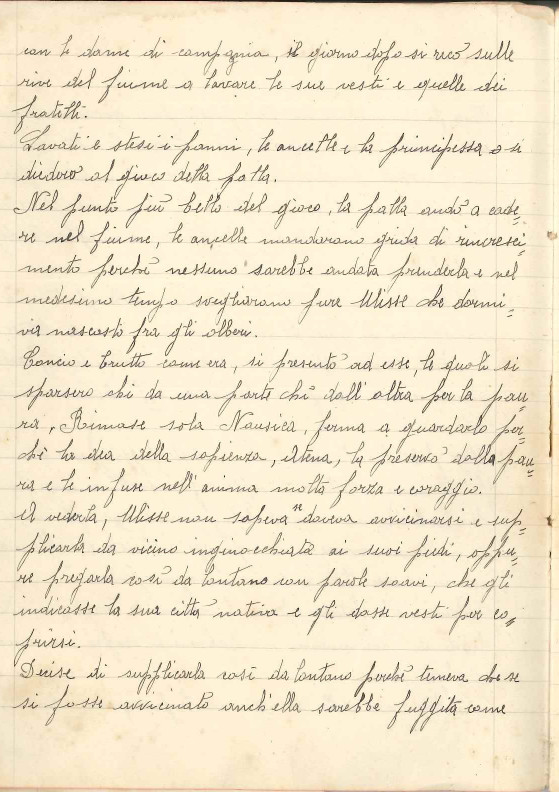 con le dame di compagnia, il giorno dopo si recò sulle
rive del fiume a lavare le sue vesti e quelle dei
fratelli.
Lavati e stesi i panni, le ancelle e la principessa si
diedero al gioco della palla.
Nel punto più bello del gioco, la palla andò a cade=
re nel fiume, le ancelle mandarono grida di rincresci=
mento perchè nessuno sarebbe andata prenderla e nel
medesimo tempo svegliarono pure Ulisse che dormi=
va nascosto fra gli alberi.
Concio e brutto com'era, si presentò ad esse, le quali si
sparsero chi da una parte chi dall'altra per la pau=
ra, Rimase sola Nausica, ferma a guardarlo per=
chè la dea della sapienza, Atena, la preservò dalla pau=
ra e le infuse nell'anima molta forza e coraggio.
A vederla, Ulisse non sapeva se doveva avvicinarsi e sup=
plicarla da vicino inginocchiato ai suoi piedi, oppu=
re pregarla così da lontano con parole soavi, che gli
indicasse la sua città nativa e gli dasse vesti per co=
prirsi.
Decise di supplicarla così da lontano perchè temeva che se
si fosse avvicinato anch'ella sarebbe fuggita come